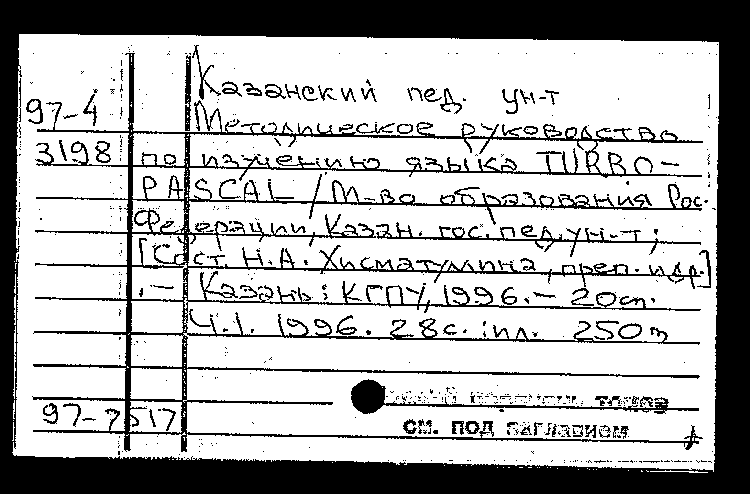 Казанский пед. ун-т
97-4
Методическое руководство
3198 по изучению языка TURBO-
PASCAL / М-во образования Рос.
Федерации, Казан. гос. пед. ун-т;
[Сост. Н.А. Хисматуллина, преп. и др.]
.- Казань: КГПУ, 1996. - 20 см.
Ч.1. 1996. 28 с.: ил. 250 т
томов
97-7517
см. под заглавием